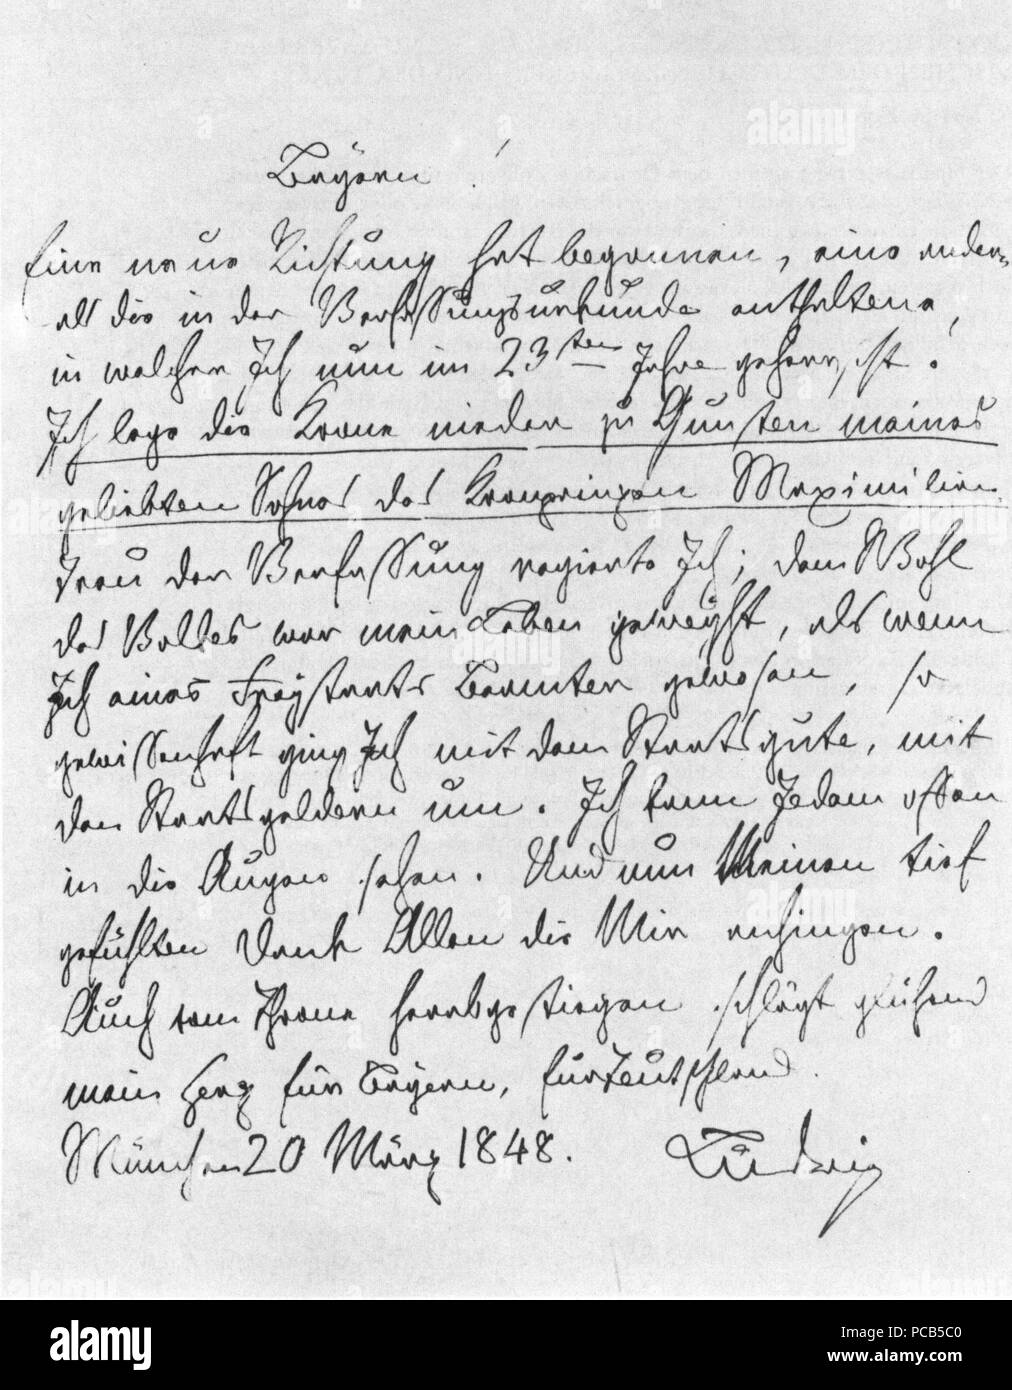 Bayern!
Eine neue Richtung hat begonnen, eine andere
als die in der Verfassungsurkunde enthaltene,
in welcher Ich nun im 23ten Jahre geherrscht.
Ich lege die Krone nieder zu Gunsten meines
geliebten Sohnes des Kronprinzen Maximilian.
Treu der Verfassung regierte Ich; dem Wohl
des Volkes war mein Leben geweyht, als wenn
Ich eines Freystaats Beamter gewesen, so
gewissenhaft ging Ich mit dem Staatsgute, mit
den Staatsgeldern um. Ich kann Jedem offen
in die Augen sehen. Und nun Meinen tief
gefühlten Dank Allen die Mir anhingen.
Auch vom Throne herabgestiegen schlägt glühend
mein Herz für Bayern, für Teutschland.
München 20 März 1848. Ludwig
alamy
PCB5C0
www.alamy.com